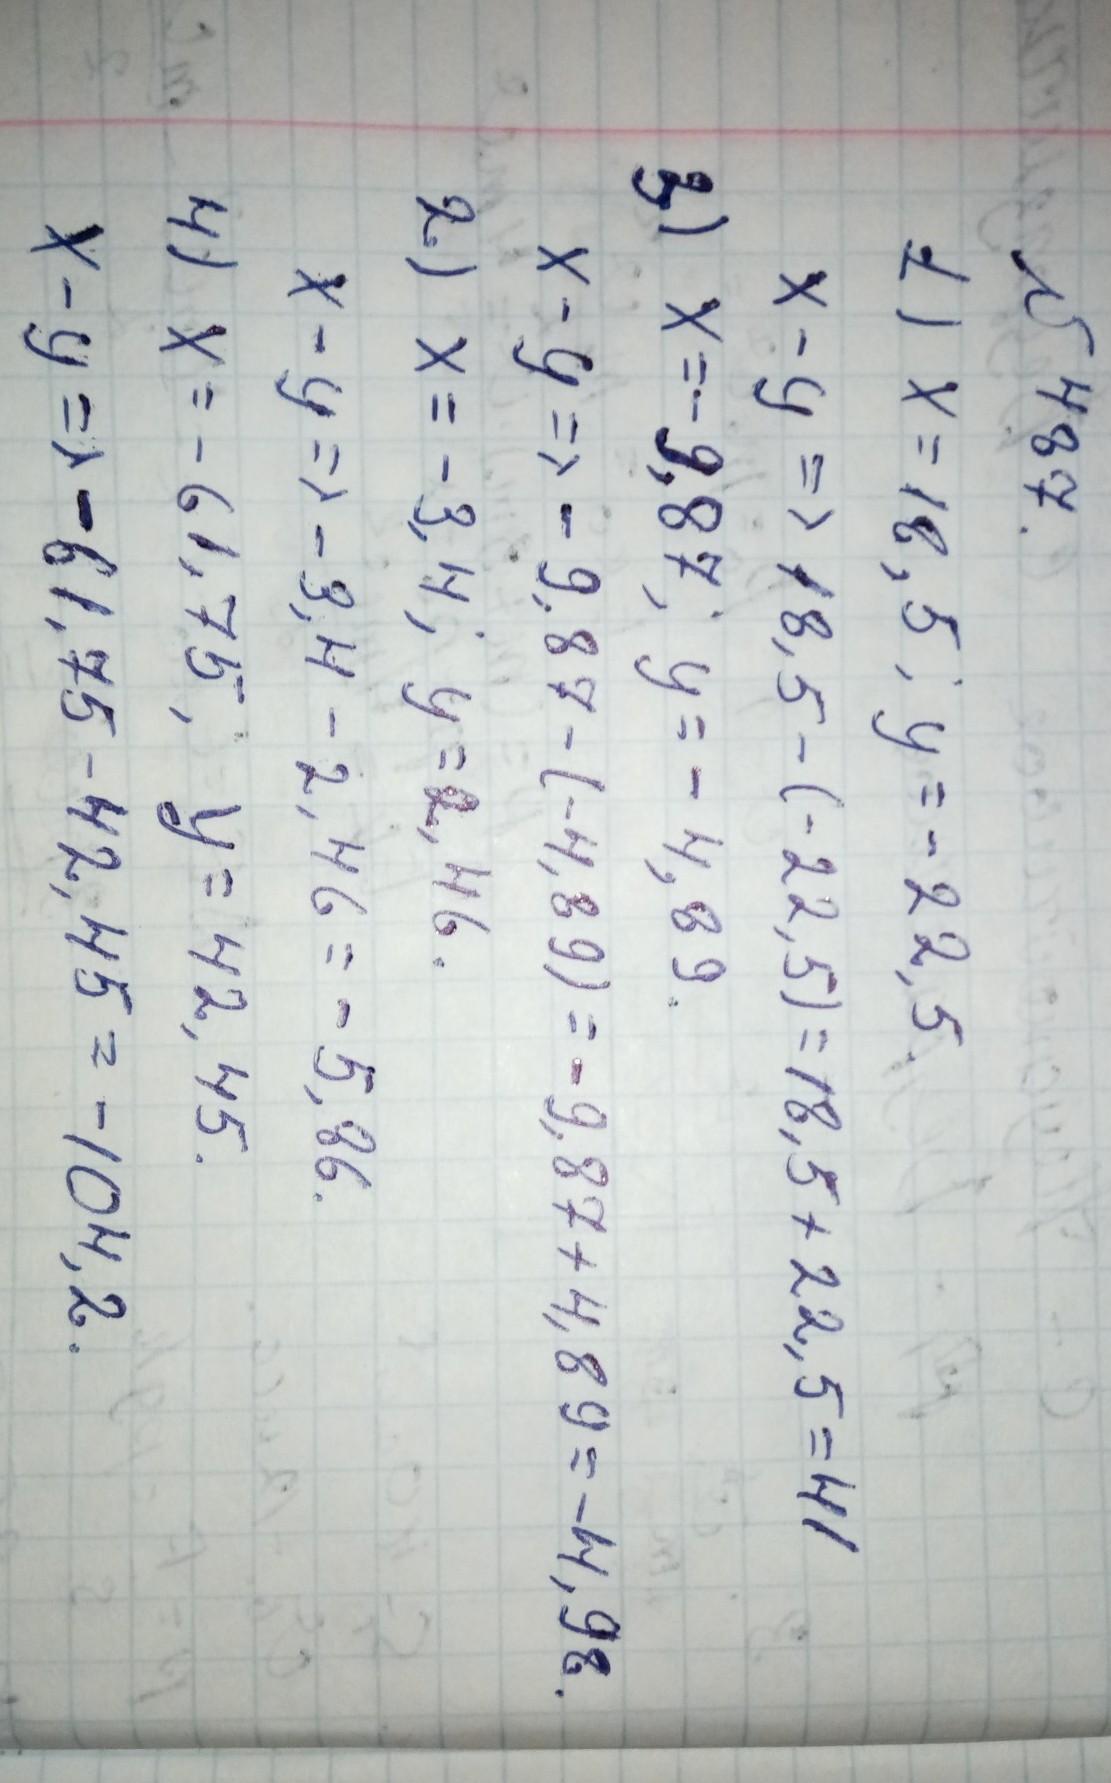 № 487.
1) x = 18,5; y = - 22,5.
x - y => 18,5 - (- 22,5) = 18,5 + 22,5 = 41
3) x = - 9,87; y = - 4,89.
x - y => - 9,87 - (-4,89) = - 9,87 + 4,89 = - 4,98.
2) x = - 3,4; y = 2,46.
x - y => - 3,4 - 2,46 = - 5,86.
4) x = - 61,75, y = 42,45.
x - y => - 61,75 - 42,45 = - 104,2.